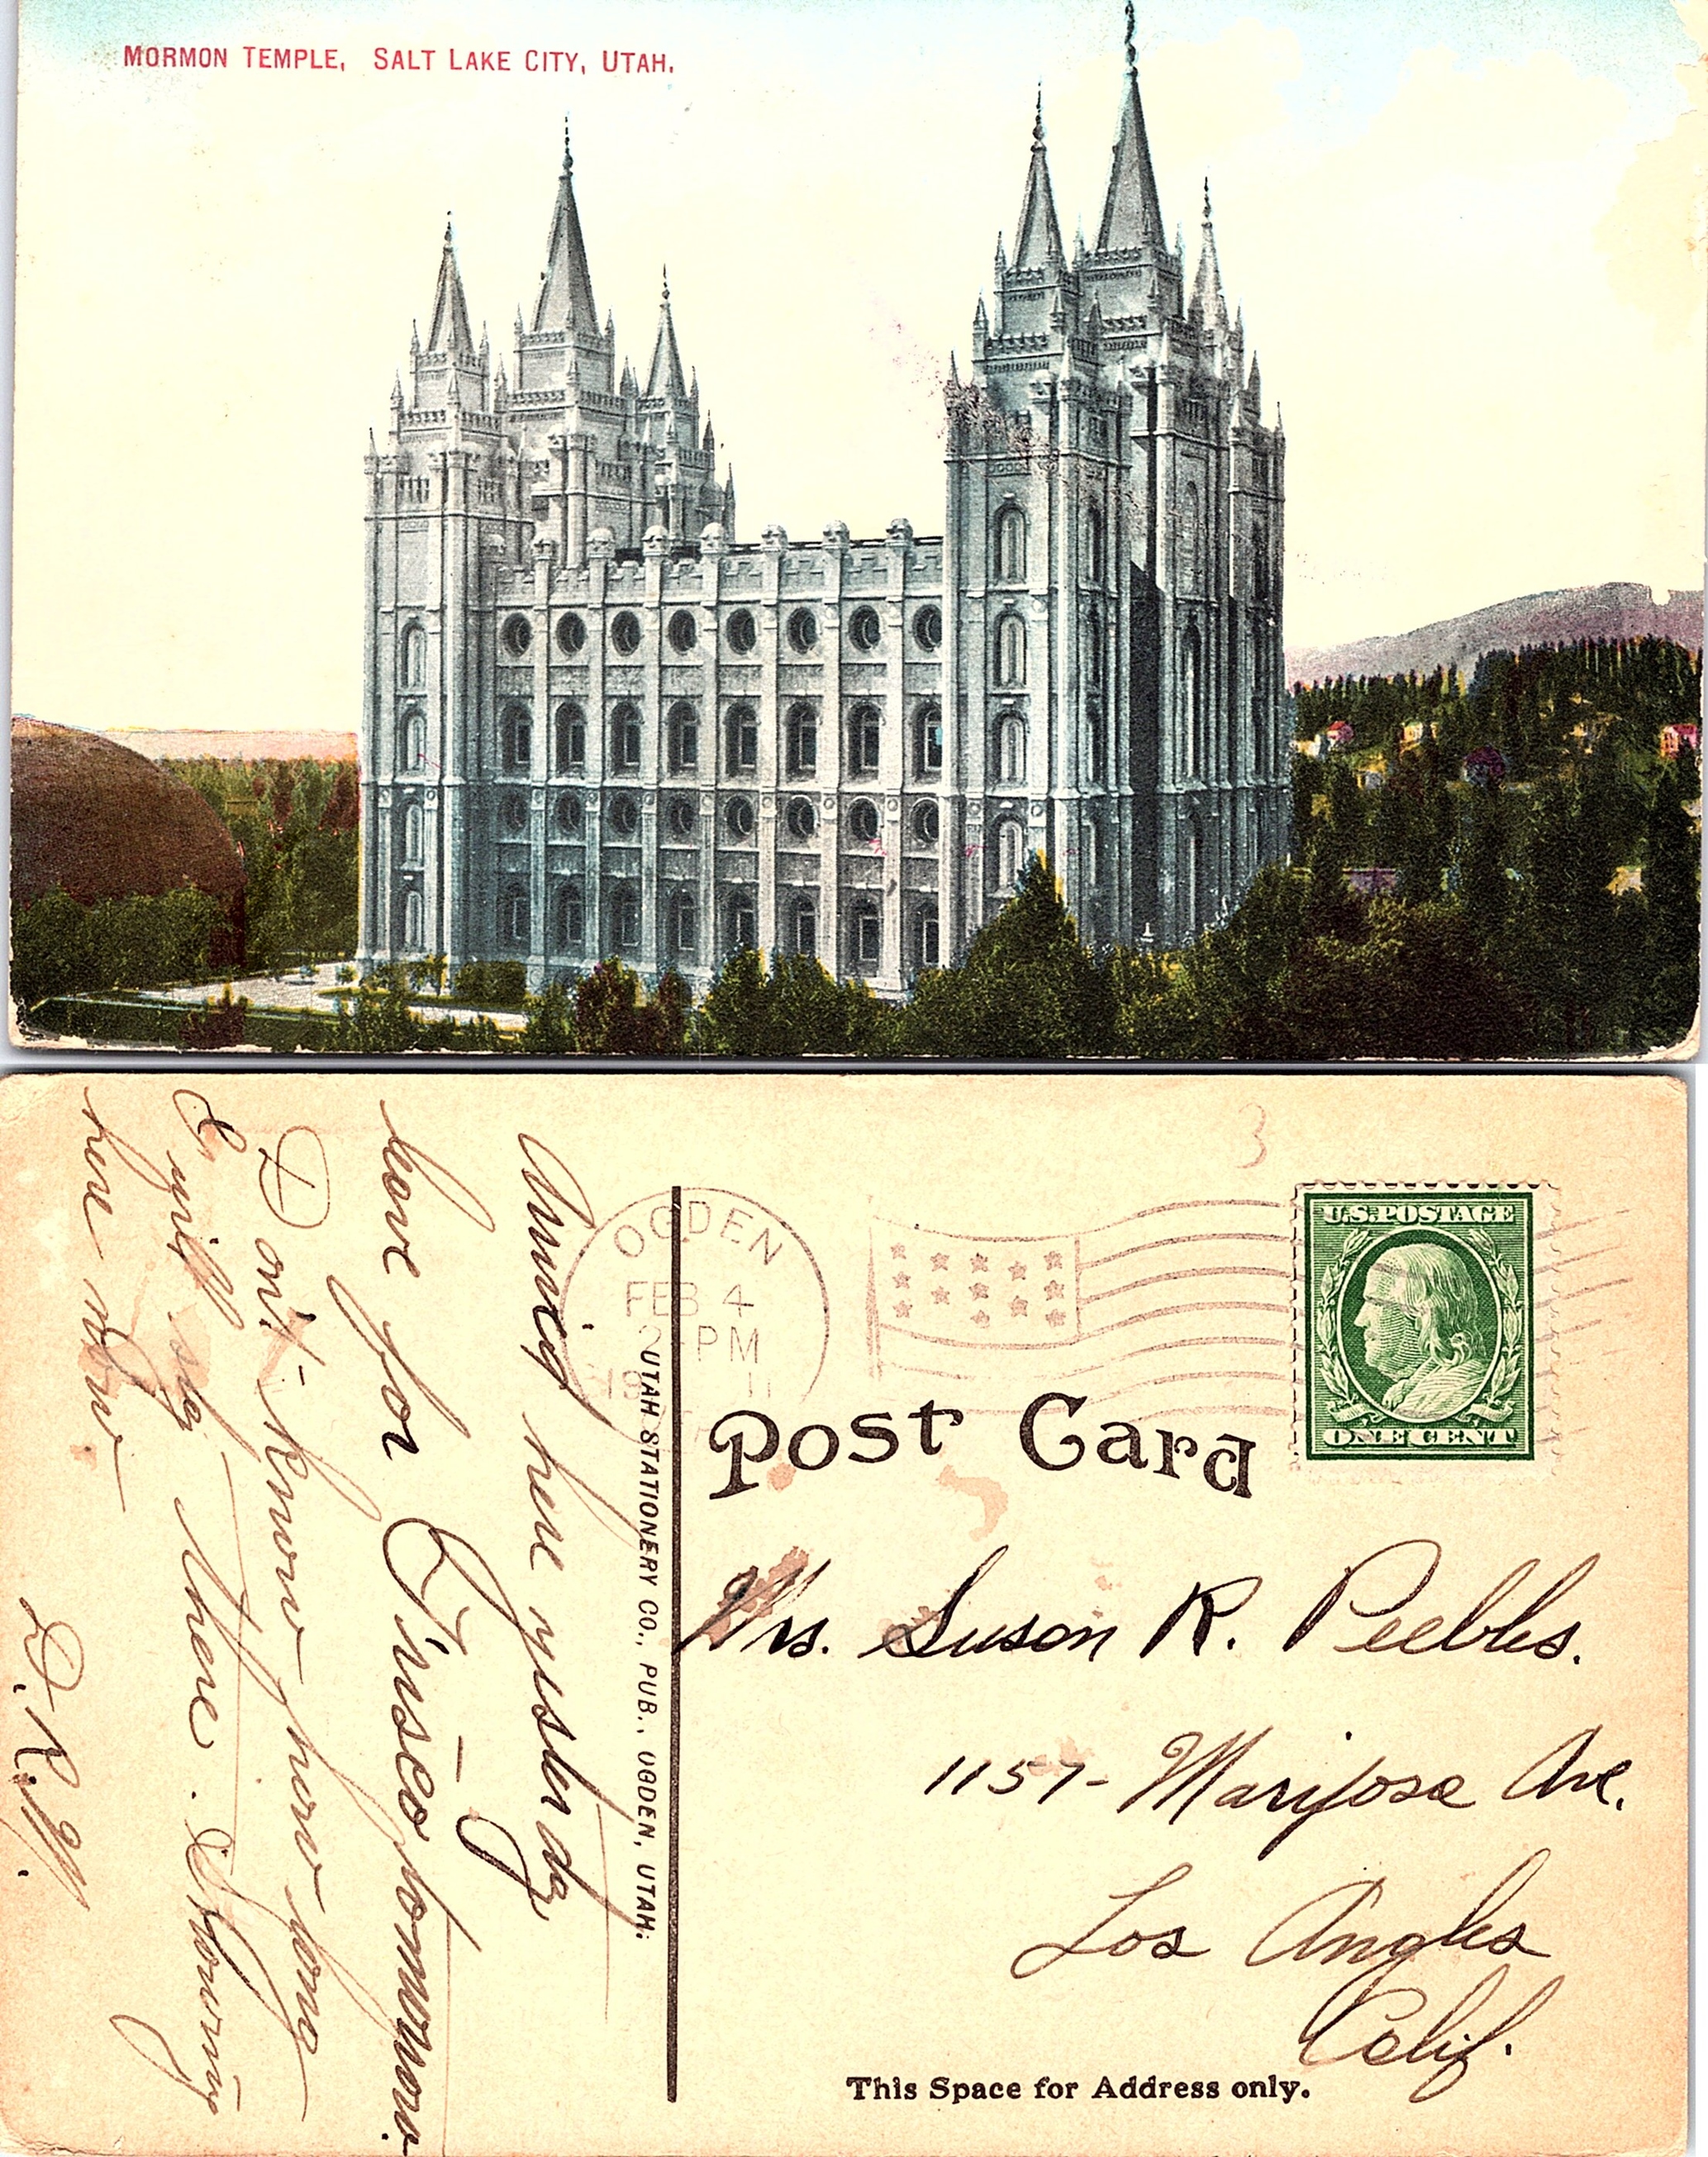 MORMON TEMPLE, SALT LAKE CITY, UTAH.
OGDEN
FEB 4
2-PM
1911
U.S. POSTAGE
ONE CENT
3
Post Card
UTAH STATIONERY CO., PUB., OGDEN, UTAH.
Mrs. Suson R. Peebles.
1157- Mariposa Ave.
Los Angles
Calif.
This Space for Address only.
here yesterday
leave for Frisco tomorrow.
Don't know how long
I will stay there. Snowing
here now